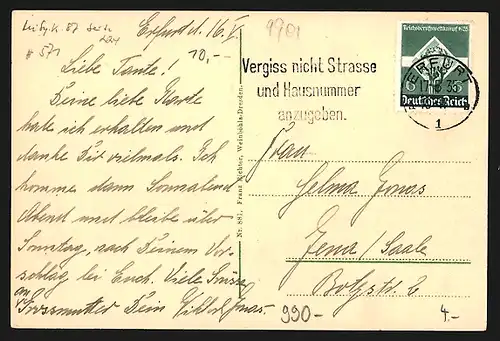 Erfurt d. 16. V.
10,-
9701
# 571
Liebe Tante!
Deine liebe Karte
habe ich erhalten und
danke Dir vielmals. Ich
komme dann Sonnabend
Abend und bleibe über
Sonntag, nach Deinem Vor-
schlag bei Euch. Viele Grüsse
an
Grossmutter Dein
Jonas.
Nr. 881. Franz Richter, Weinböhla-Dresden.
Vergiss nicht Strasse
und Hausnummer
anzugeben.
Reichsberufswettkampf 1935
6
Deutsches Reich
ERFURT
1
Frau
Selma Jonas
Jena / Saale
Botzstr. 6
990-
4.-